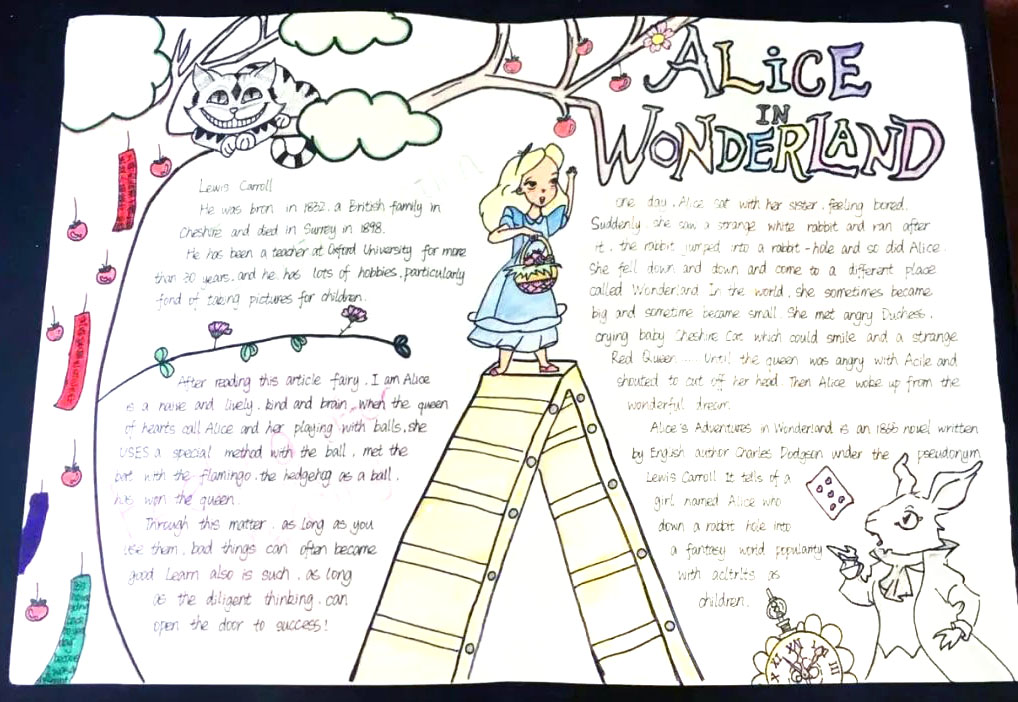 ALiCE
IN
WONDERLAND
Lewis Carroll
He was bron in 1832, a British family in
Cheshire and died in Surrey in 1898.
He has been a teacher at Oxford University for more
than 30 years, and he has lots of hobbies, particularly
fond of taking pictures for children.
After reading this article fairy, I am Alice
is a naive and lively, kind and brain, when the queen
of hearts call Alice and her playing with balls, she
USES a special method with the ball, met the
bat with the flamingo, the hedgehog as a ball,
has won the queen.
Through this matter, as long as you
use them, bad things can often became
good Learn also is such, as long
as the diligent thinking, can
open the door to success!
one day, Alice sat with her sister, feeling bored.
Suddenly, she saw a strange white rabbit and ran after
it, the rabbit jumped into a rabbit-hole and so did Alice.
She fell down and down and come to a different place
called Wonderland In the world, she sometimes became
big and sometime became small. She met angry Duchess,
crying baby Cheshire Cat which could smile and a strange
Red Queen...... Until the queen was angry with Acile and
shouted to cut off her head. Then Alice woke up from the
wonderful dream.
Alice's Adventures in Wonderland is an 1865 novel written
by English author Charles Dodgson under the pseudonym
Lewis Carroll It tells of a
girl named Alice who
down a rabbit hole into
a fantasy world popularity
with acltrlts as
children.
XI XII III